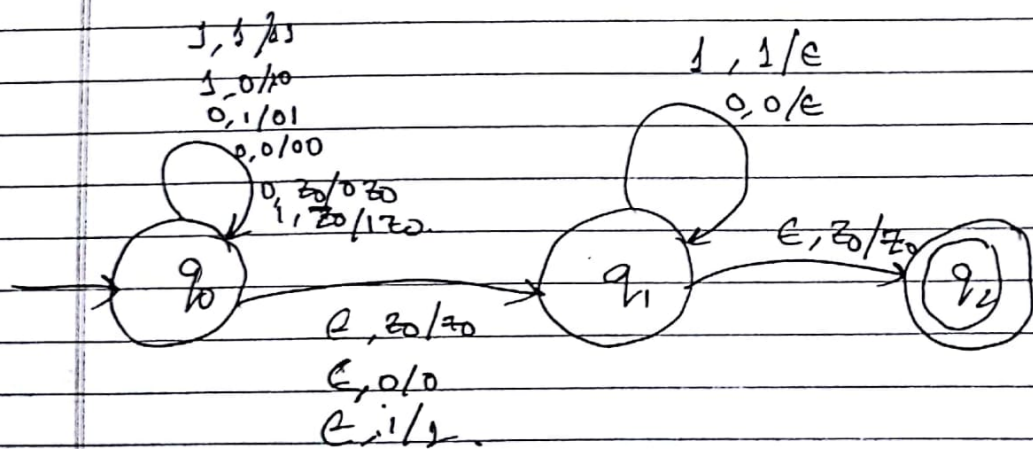 1, 1/11
1, 0/10
0, 1/01
0, 0/00
0, z0/0z0
1, z0/1z0.
1, 1/ϵ
0, 0/ϵ
ϵ, z0/z0
q0
q1
q2
ϵ, z0/z0
ϵ, 0/0
ϵ, 1/1.